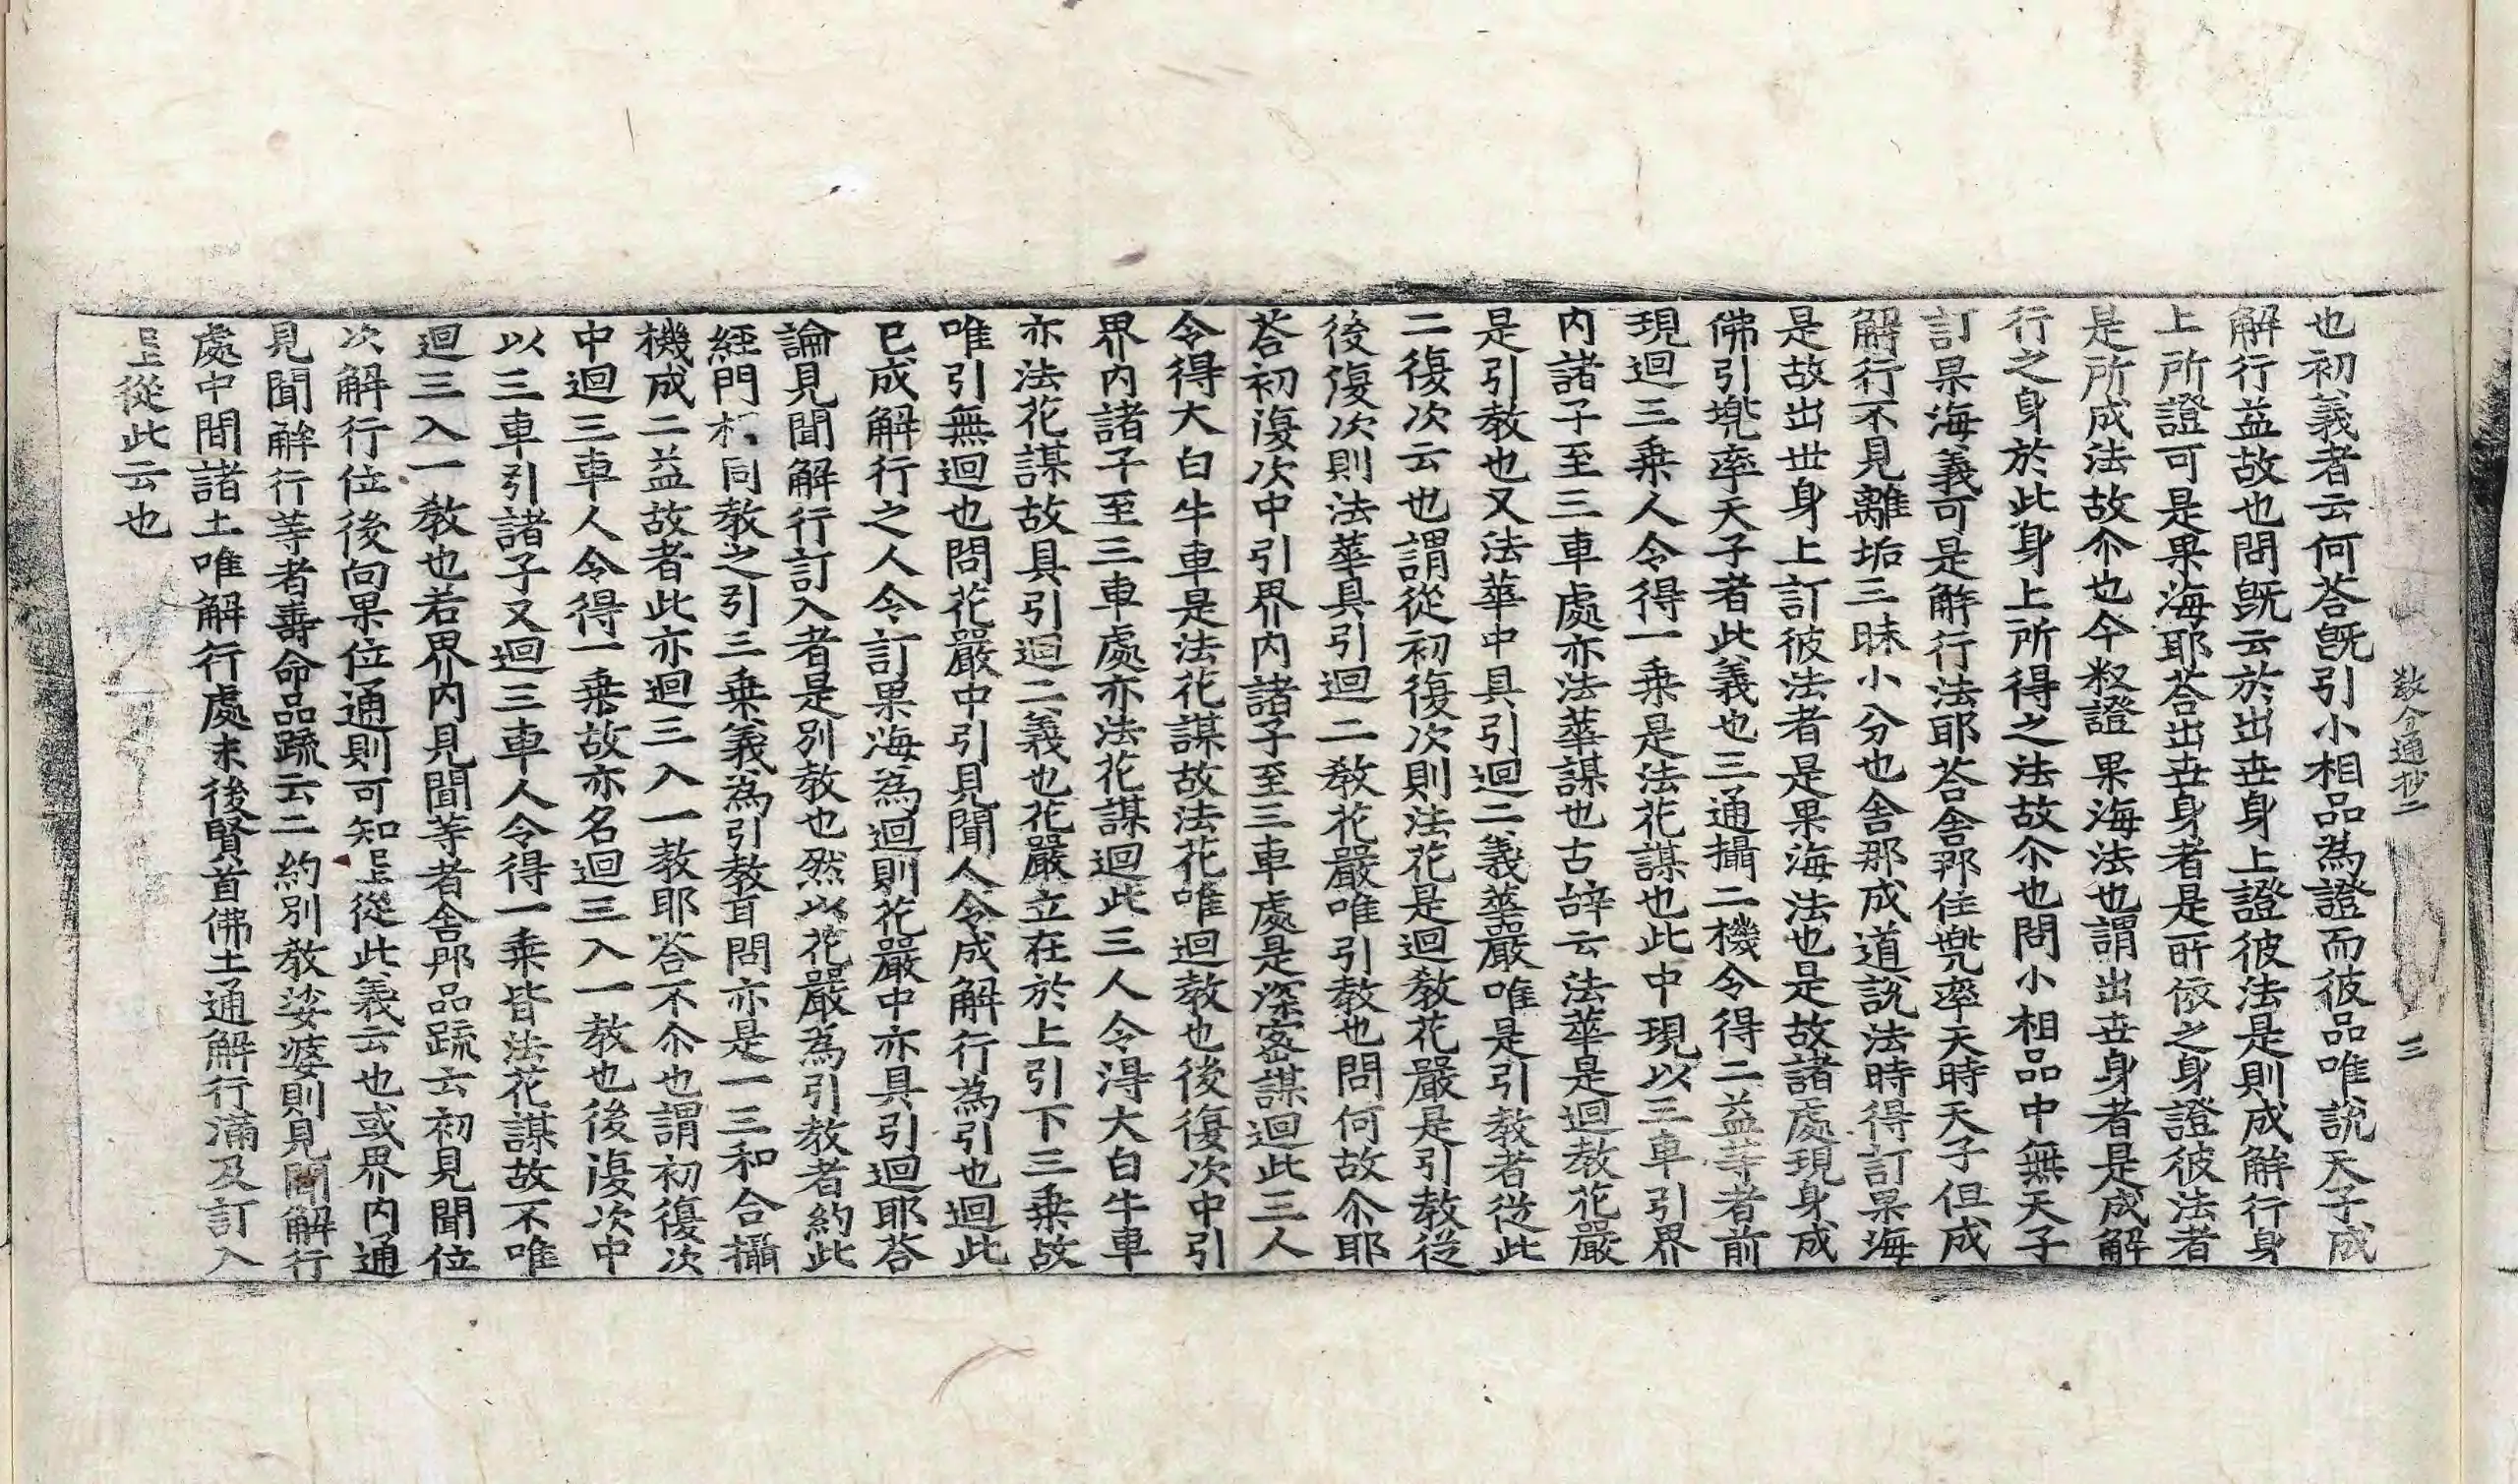 教分通抄二 三
也初義者云何荅旣引小相品為證而彼品唯說天子成
解行益故也問旣云於出世身上證彼法是則成解行身
上所證可是果海耶荅出世身者是所依之身證彼法者
是所成法故尒也今叙證果海法也謂出世身者是成解
行之身於此身上所得之法故尒也問小相品中無天子
訂果海義可是解行法耶荅舍那住兠率天時天子但成
解行不見離垢三昧小分也舍那成道說法時得訂果海
是故出世身上訂彼法者是果海法也是故諸處現身成
佛引兠率天子者此義也三通攝二機令得二益等者前
現迴三乗人令得一乗是法花謀也此中現以三車引界
内諸子至三車處亦法華謀也古辞云法華是迴教花嚴
是引教也又法華中具引迴二義華嚴唯是引教者從此
二復次云也謂從初復次則法花是迴教花嚴是引教從
後復次則法華具引迴二教花嚴唯引教也問何故尒耶
荅初復次中引界内諸子至三車處是深密謀迴此三人
令得大白牛車是法花謀故法花唯迴教也後復次中引
界内諸子至三車處亦法花謀迴此三人令得大白牛車
亦法花謀故具引迴二義也花嚴立在於上引下三乗故
唯引無迴也問花嚴中引見聞人令成解行為引也迴此
已成解行之人令訂果海為迴則花嚴中亦具引迴耶荅
論見聞解行訂入者是別教也然以花嚴為引教者約此
經門相同教之引三乗義為引教耳問亦是一三和合攝
機成二益故者此亦迴三入一教耶荅不尒也謂初復次
中迴三車人令得一乗故亦名迴三入一教也後復次中
以三車引諸子又迴三車人令得一乗皆法花謀故不唯
迴三入一教也若界内見聞等者舍那品䟽云初見聞位
次解行位後向果位通則可知已上從此義云也或界内通
見聞解行等者壽命品䟽云二約別教娑婆則見聞解行
處中間諸土唯解行處末後賢首佛土通解行滿及訂入
已上從此云也